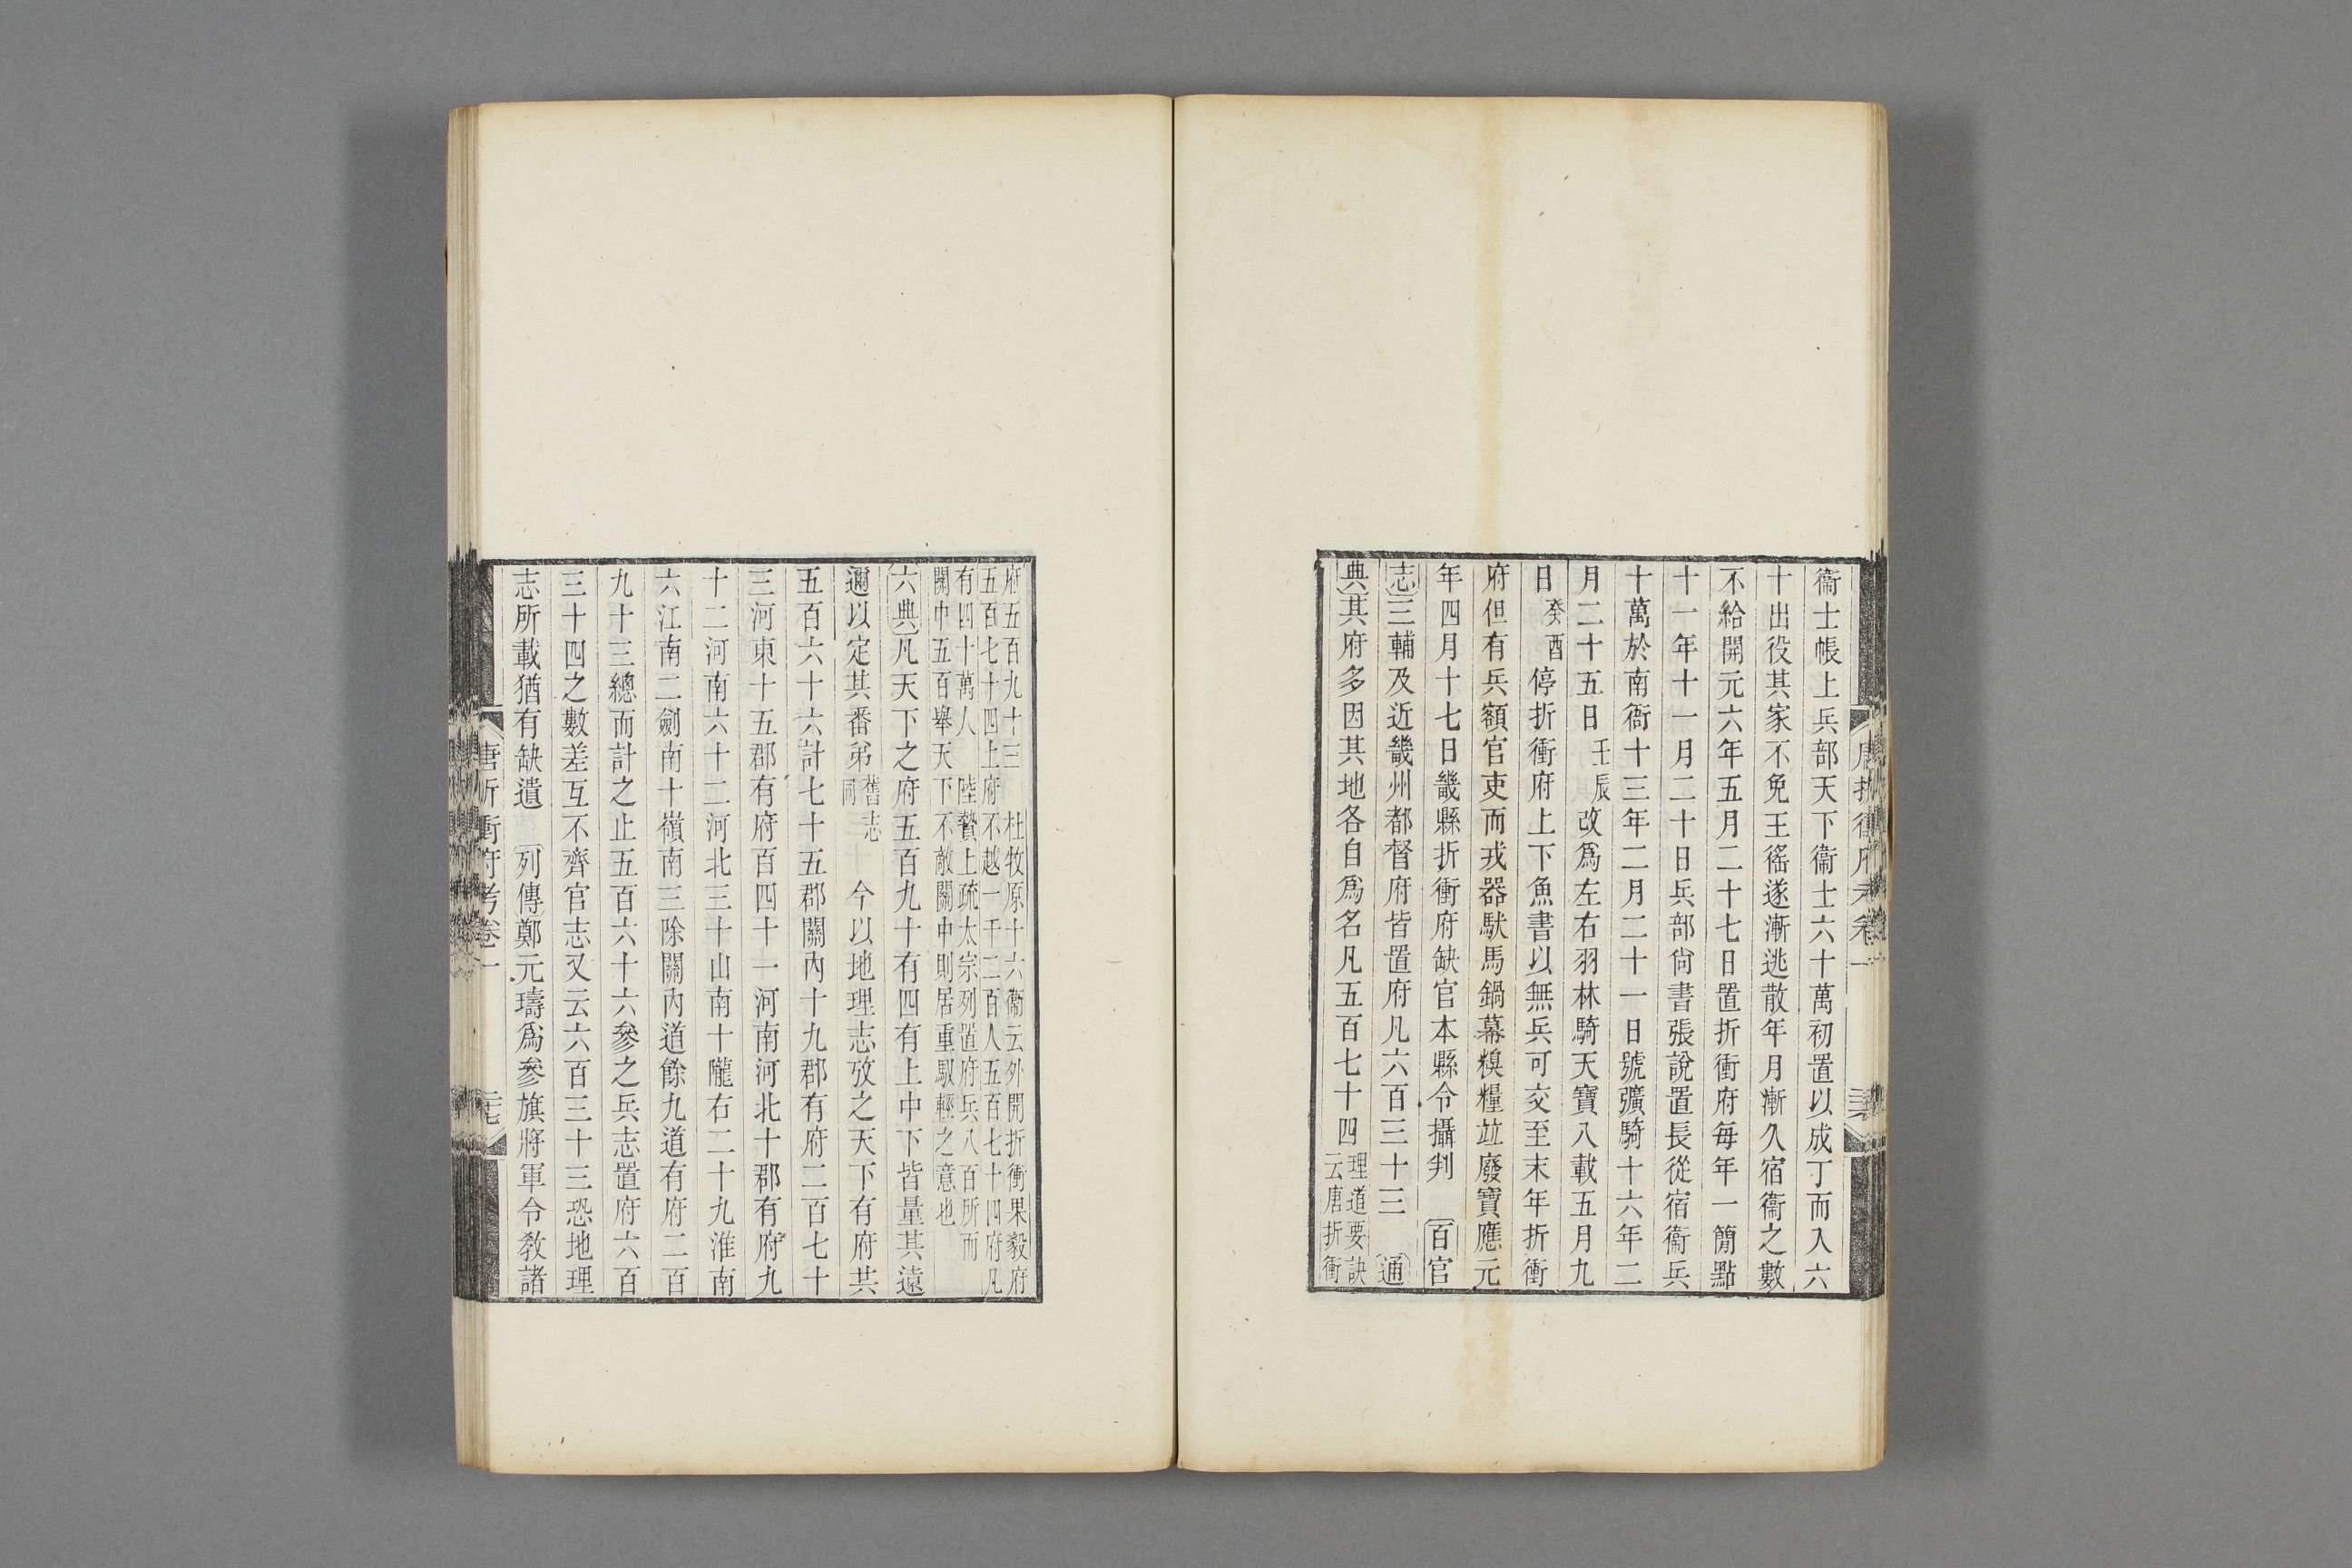 衞士帳上兵部天下衞士六十萬初置以成丁而入六
十出役其家不免王徭遂漸逃散年月漸久宿衞之數
不給開元六年五月二十七日置折衝府每年一簡點
十一年十一月二十日兵部尙書張說置長從宿衞兵
十萬於南衙十三年二月二十一日號彍騎十六年二
月二十五日壬辰改爲左右羽林騎天寶八載五月九
日癸酉停折衝府上下魚書以無兵可交至末年折衝
府但有兵額官吏而戎器馱馬鍋幕糗糧竝廢寶應元
年四月十七日畿縣折衝府缺官本縣令攝判 百官
志三輔及近畿州都督府皆置府凡六百三十三 通
典其府多因其地各自爲名凡五百七十四理道要訣
云唐折衝
府五百九十三 杜牧原十六衞云外開折衝果毅府
五百七十四上府不越一千二百人五百七十四府凡
有四十萬人 陸贄上疏太宗列置府兵八百所而
關中五百舉天下不敵關中則居重馭輕之意也
六典凡天下之府五百九十有四有上中下皆量其遠
邇以定其番弟舊志
同 今以地理志攷之天下有府共
五百六十六計七十五郡關內十九郡有府二百七十
三河東十五郡有府百四十一河南河北十郡有府九
十二河南六十二河北三十山南十隴右二十九淮南
六江南二劍南十嶺南三除關內道餘九道有府二百
九十三總而計之止五百六十六參之兵志置府六百
三十四之數差互不齊官志又云六百三十三恐地理
志所載猶有缺遺 列傳鄭元璹爲參旗將軍令敎諸
唐折衝府考卷一